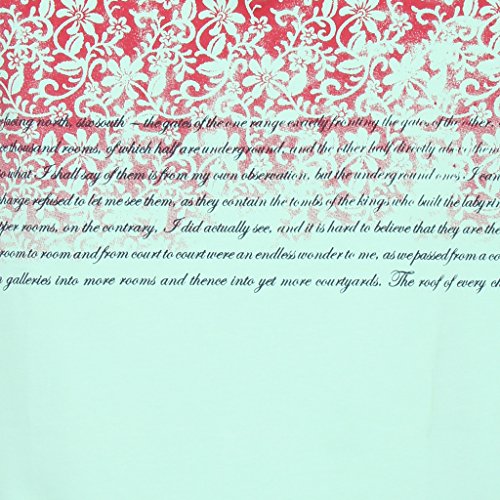 facing north, six south – the gates of the one range exactly fronting the gates of the other,
thousand rooms, of which half are underground, and the other half directly above them
what I shall say of them is from my own observation, but the underground ones I can
charge refused to let me see them, as they contain the tombs of the kings who built the labyrin
pper rooms, on the contrary, I did actually see, and it is hard to believe that they are the
room to room and from court to court were an endless wonder to me, as we passed from a co
n galleries into more rooms and thence into yet more courtyards. The roof of every ch